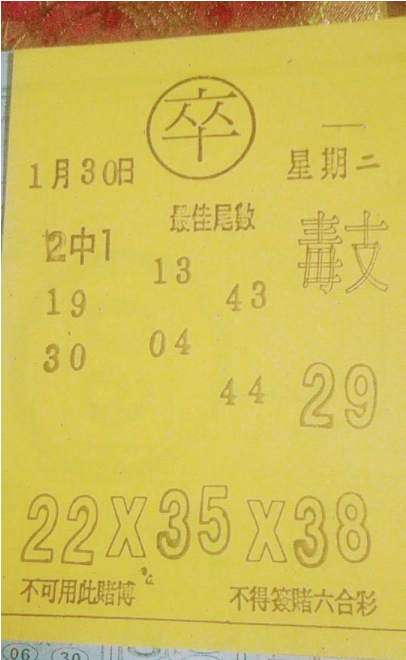 卒
1月30日
星期二
最佳尾數
2中1
13
19
43
04
30
44
29
22X35X38
不可用此賭博
不得簽賭六合彩
06 30